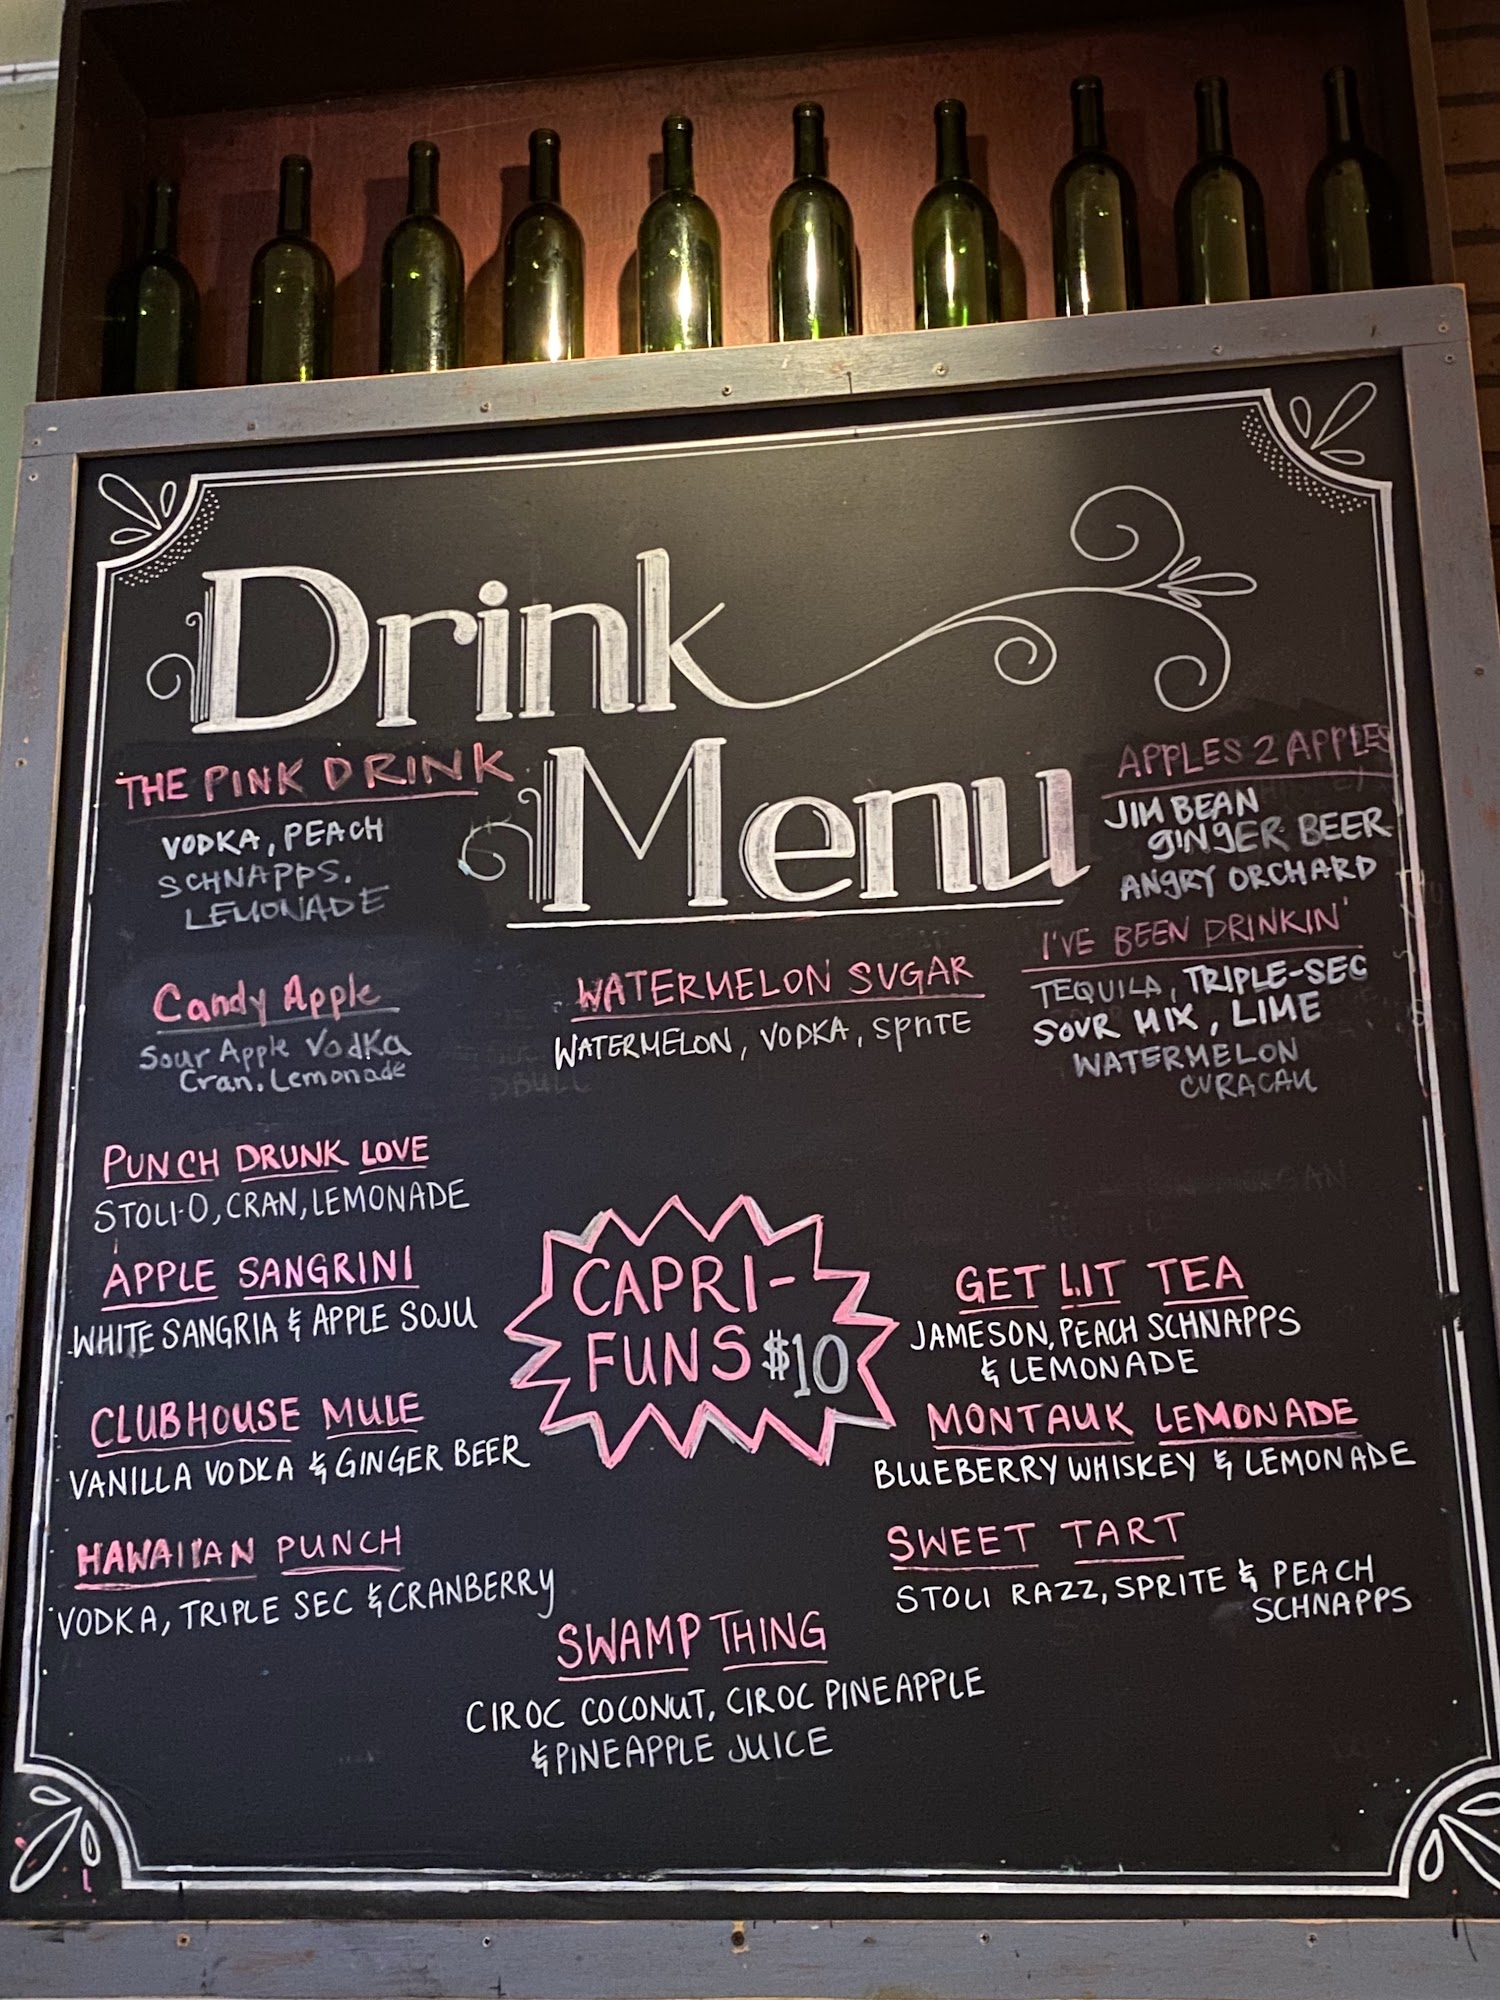 Drink
Menu
THE PINK DRINK
VODKA, PEACH
SCHNAPPS.
LEMONADE
APPLES 2 APPLES
JIM BEAN
GINGER BEER
ANGRY ORCHARD
Candy Apple
Sour Apple Vodka
Cran. Lemonade
WATERMELON SUGAR
WATERMELON, VODKA, SPRITE
I'VE BEEN DRINKIN'
TEQUILA, TRIPLE-SEC
SOUR MIX, LIME
WATERMELON
CURACAU
PUNCH DRUNK LOVE
STOLI-O, CRAN, LEMONADE
APPLE SANGRINI
WHITE SANGRIA & APPLE SOJU
CLUBHOUSE MULE
VANILLA VODKA & GINGER BEER
HAWAIIAN PUNCH
VODKA, TRIPLE SEC & CRANBERRY
CAPRI-
FUNS $10
GET LIT TEA
JAMESON, PEACH SCHNAPPS
& LEMONADE
MONTAUK LEMONADE
BLUEBERRY WHISKEY & LEMONADE
SWEET TART
STOLI RAZZ, SPRITE & PEACH
SCHNAPPS
SWAMP THING
CIROC COCONUT, CIROC PINEAPPLE
& PINEAPPLE JUICE